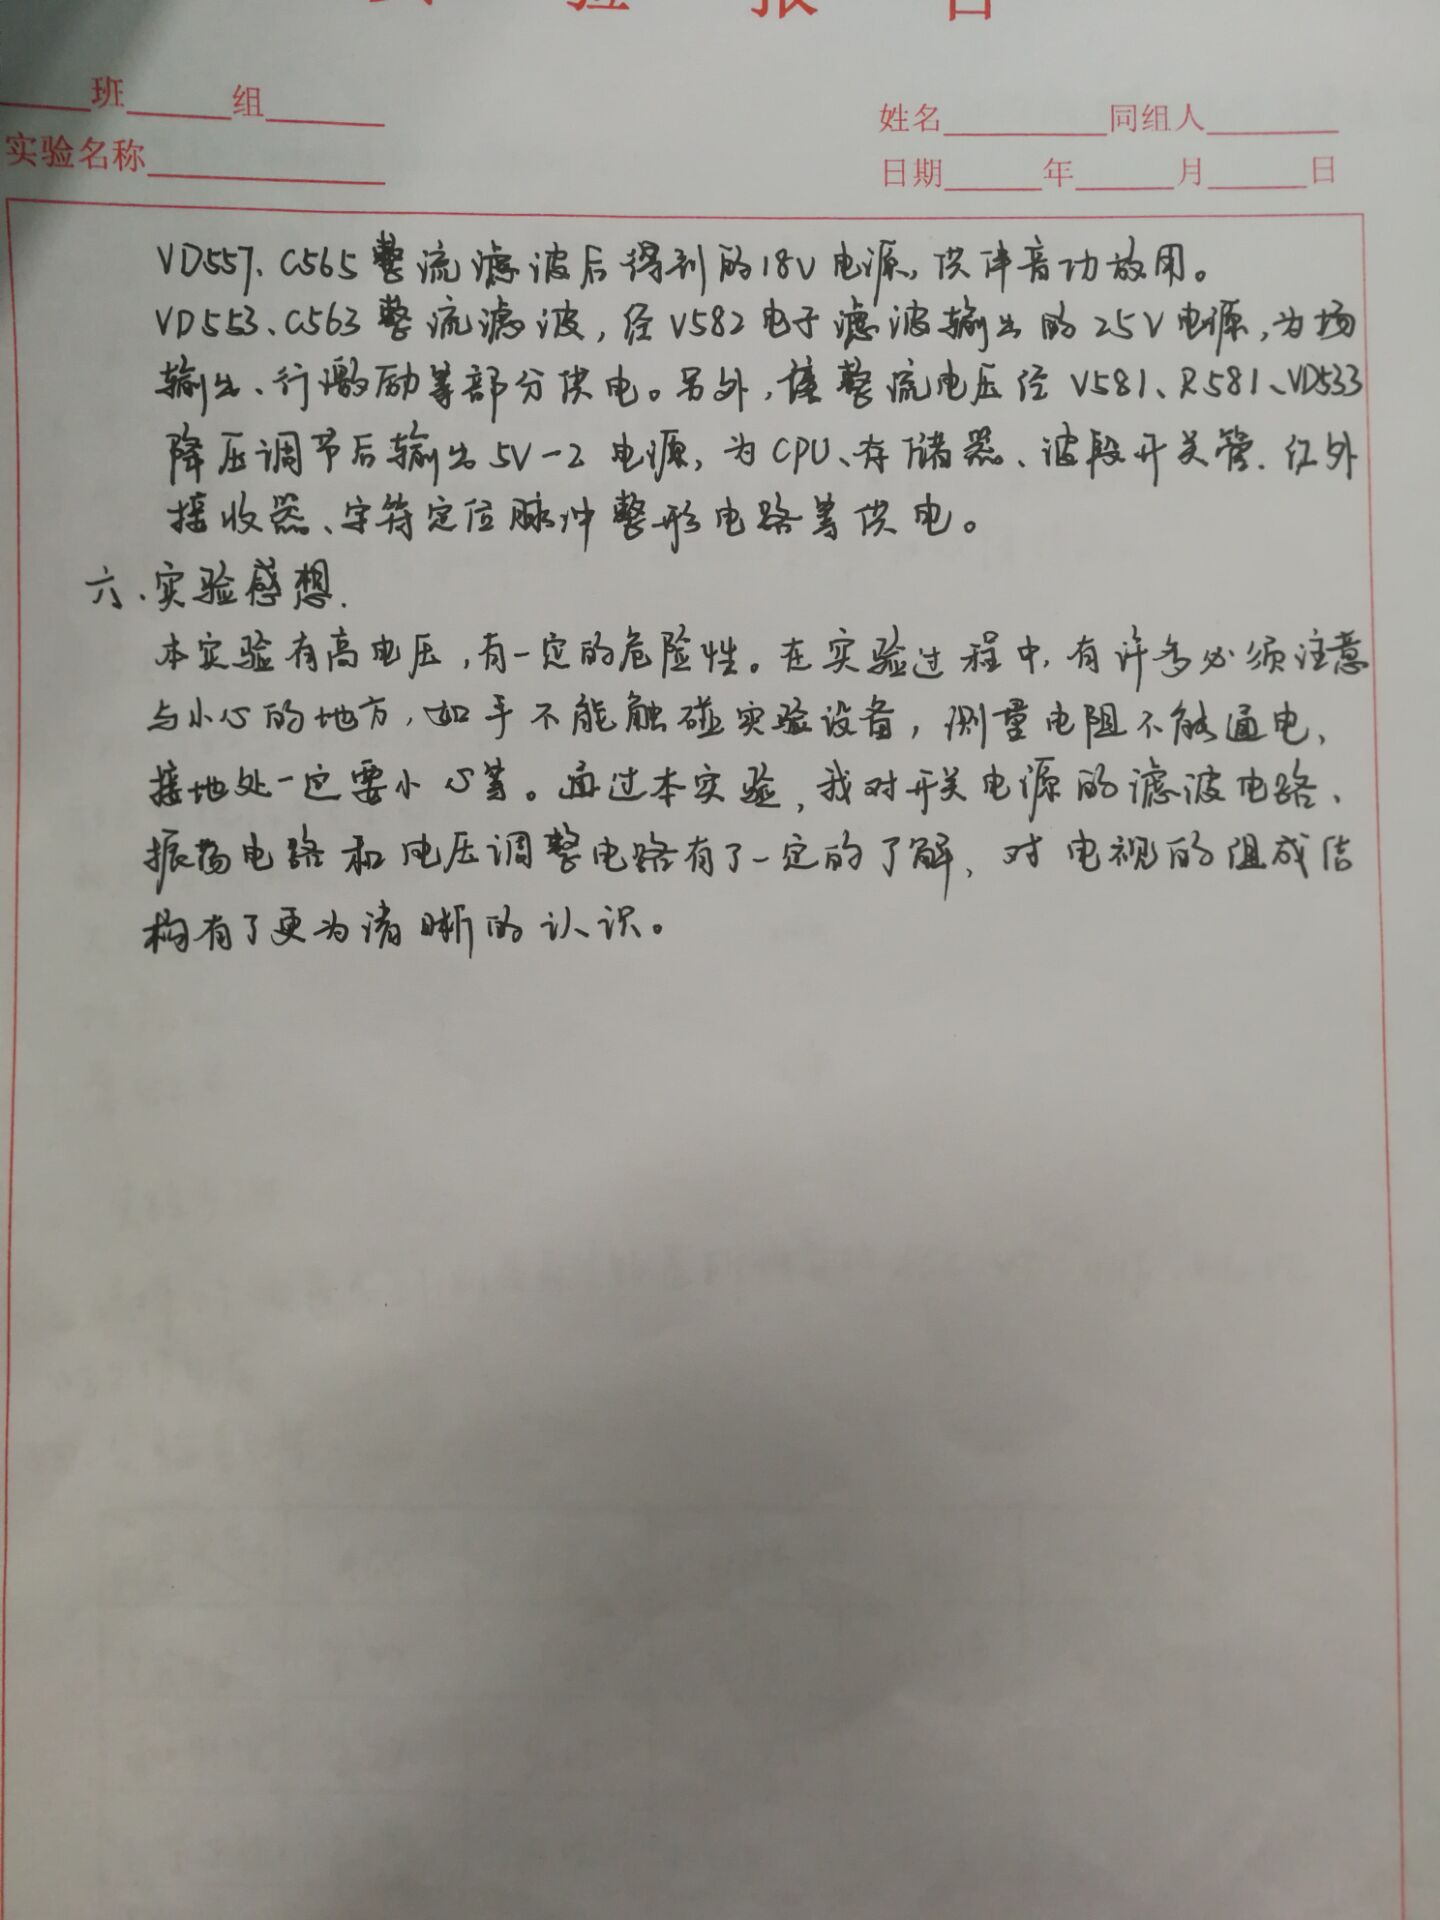 实验报告
班 组
姓名 同组人
实验名称
日期 年 月 日
VD557、C565整流滤波后得到的18V电源,供伴音功放用。
VD553、C563整流滤波,经V582电子滤波输出的25V电源,为场
输出、行激励等部分供电。另外,该整流电压经V581、R581、VD533
降压调节后输出5V-2电源,为CPU、存储器、波段开关管、红外
接收器、字符定位脉冲整形电路等供电。
六、实验感想.
本实验有高电压,有一定的危险性。在实验过程中,有许多必须注意
与小心的地方,如手不能触碰实验设备,测量电阻不能通电,
接地处一定要小心等。通过本实验,我对开关电源的滤波电路、
振荡电路和电压调整电路有了一定的了解,对电视的组成结
构有了更为清晰的认识。